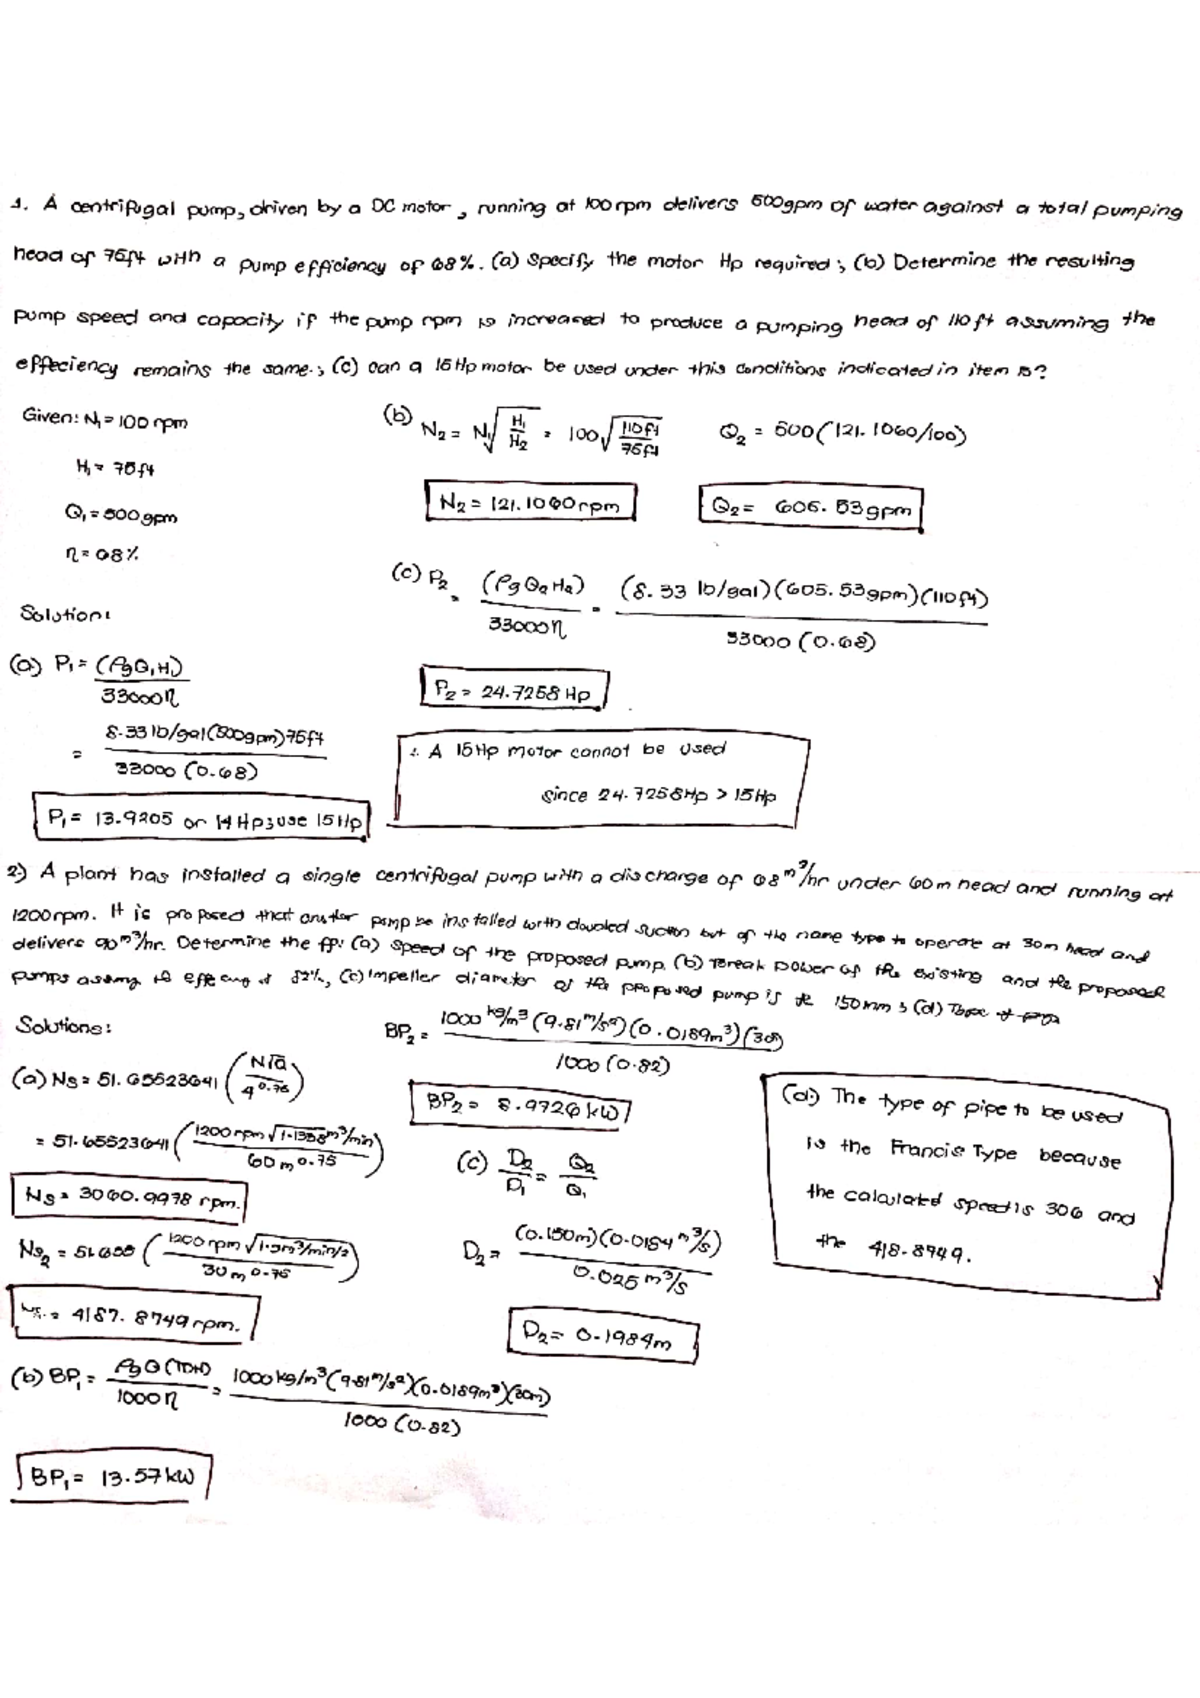 1. A centrifugal pump, driven by a DC motor, running at 100rpm delivers 500gpm of water against a total pumping
head of 75ft with a pump efficiency of 68%. (a) Specify the motor Hp required; (b) Determine the resulting
pump speed and capacity if the pump rpm is increased to produce a pumping head of 110ft assuming the
effeciency remains the same.; (c) can a 15Hp motor be used under this conditions indicated in item B?
Given: N₁ = 100 rpm
H₁ = 75ft
Q₁ = 500gpm
η = 68%
Solution:
(a) P₁ = (ρgQ₁H₁) / 33000η
= 8.33 lb/gal(500gpm)75ft / 33000 (0.68)
P₁ = 13.9205 or 14 Hp; use 15Hp
(b) N₂ = N₁√(H₁/H₂) = 100√(110ft/75ft)
Q₂ = 500(121.1060/100)
N₂ = 121.1060rpm
Q₂ = 605.53gpm
(c) P₂ = (ρgQ₂H₂) / 33000η = (8.33 lb/gal)(605.53gpm)(110ft) / 33000 (0.68)
P₂ = 24.7258 Hp
∴ A 15Hp motor cannot be used
since 24.7258Hp > 15Hp
2) A plant has installed a single centrifugal pump with a discharge of 68 m³/hr under 60m head and running at
1200rpm. It is proposed that another pump be installed with doubled suction but of the same type to operate at 30m head and
delivers 90m³/hr. Determine the ff: (a) speed of the proposed pump. (b) Break power of the existing and the proposed
pumps assuming the 82%, (c) Impeller diameter of the proposed pump is 150mm; (d) Type of
Solutions:
(a) Ns = 51.65523641 (N√Q / 4^0.75)
= 51.65523641 (1200rpm √1.1338m³/min / 60m^0.75)
Ns = 3060.9978 rpm.
Ns₂ = 51.655 (1200rpm √1.5m³/min/2 / 30m^0.75)
Ns. = 4187.8749rpm.
(b) BP₁ = ρgQ(TDH) / 1000η = 1000kg/m³(9.81m/s²)(0.0189m³)(30m) / 1000 (0.82)
BP₁ = 13.57kW
BP₂ = 1000 kg/m³ (9.81m/s²)(0.0189m³)(30) / 1000 (0.82)
BP₂ = 8.9726kW
(c) D₂/D₁ = Q₂/Q₁
D₂ = (0.150m)(0.0184 m³/s) / 0.025 m³/s
D₂ = 0.1984m
(d.) The type of pipe to be used
is the Francis Type because
the calculated speed is 306 and
the 418.8749.